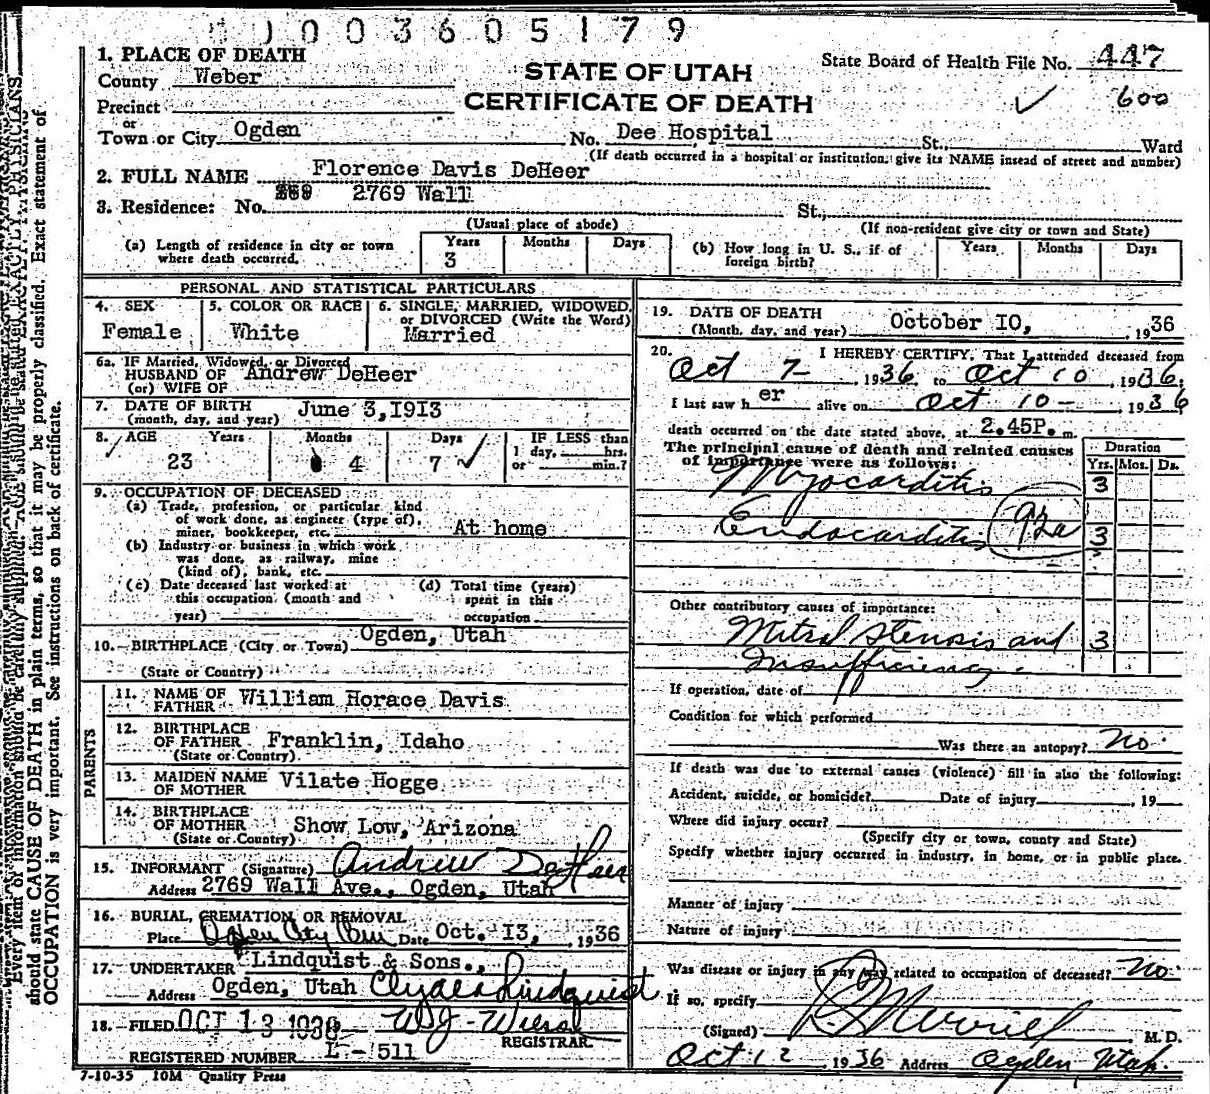 1003605179
1. PLACE OF DEATH
County Weber
STATE OF UTAH
State Board of Health File No. 447
Precinct
CERTIFICATE OF DEATH
600
or
Town or City Ogden No. Dee Hospital St., Ward
(If death occurred in a hospital or institution, give its NAME insead of street and number)
2. FULL NAME Florence Davis DeHeer
3. Residence: No. 2769 Wall St.,
(Usual place of abode) (If non-resident give city or town and State)
(a) Length of residence in city or town where death occurred. Years 3 Months Days
(b) How long in U. S., if of foreign birth? Years Months Days
PERSONAL AND STATISTICAL PARTICULARS
4. SEX Female
5. COLOR OR RACE White
6. SINGLE, MARRIED, WIDOWED, or DIVORCED (Write the Word) Married
6a. IF Married, Widowed, or Divorced
HUSBAND OF Andrew DeHeer
(or) WIFE OF
7. DATE OF BIRTH June 3, 1913
(month, day, and year)
8. AGE Years 23 Months 4 Days 7 IF LESS than 1 day, hrs. or min.?
9. OCCUPATION OF DECEASED
(a) Trade, profession, or particular kind
of work done, as engineer (type of),
miner, bookkeeper, etc. At home
(b) Industry or business in which work
was done, as railway, mine
(kind of), bank, etc.
(c) Date deceased last worked at this occupation (month and year)
(d) Total time (years) spent in this occupation
10. BIRTHPLACE (City or Town) Ogden, Utah
(State or Country)
PARENTS
11. NAME OF FATHER William Horace Davis
12. BIRTHPLACE OF FATHER Franklin, Idaho
(State or Country)
13. MAIDEN NAME OF MOTHER Vilate Hogge
14. BIRTHPLACE OF MOTHER Show Low, Arizona
(State or Country)
15. INFORMANT (Signature) Andrew DeHeer
Address 2769 Wall Ave., Ogden, Utah
16. BURIAL, CREMATION, OR REMOVAL
Place Ogden City Cem Date Oct. 13, 1936
17. UNDERTAKER Lindquist & Sons.,
Address Ogden, Utah Clyde Lindquist
18. FILED OCT 13 1936
REGISTRAR
REGISTERED NUMBER L - 511
7-10-35 10M Quality Press
19. DATE OF DEATH October 10, 1936
(Month, day, and year)
20. I HEREBY CERTIFY, That I attended deceased from
Oct 7 - 1936 to Oct 10, 1936;
I last saw her alive on Oct 10 - 1936
death occurred on the date stated above, at 2.45P. m.
The principal cause of death and related causes
of importance were as follows:
Duration
Yrs. Mos. Ds.
Myocarditis 3
Endocarditis 92a 3
Other contributory causes of importance:
Mitral Stenosis and 3
Insufficiency.
If operation, date of
Condition for which performed
Was there an autopsy? No.
If death was due to external causes (violence) fill in also the following:
Accident, suicide, or homicide? Date of injury , 19
Where did injury occur?
(Specify city or town, county and State)
Specify whether injury occurred in industry, in home, or in public place.
Manner of injury
Nature of injury
Was disease or injury in any way related to occupation of deceased? No.
If so, specify
(Signed) Merrill M. D.
Oct 12 1936 Address Ogden, Utah.
Every item of information should be carefully supplied. AGE should be stated EXACTLY. PHYSICIANS
should state CAUSE OF DEATH in plain terms, so that it may be properly classified. Exact statement of
OCCUPATION is very important. See instructions on back of certificate.